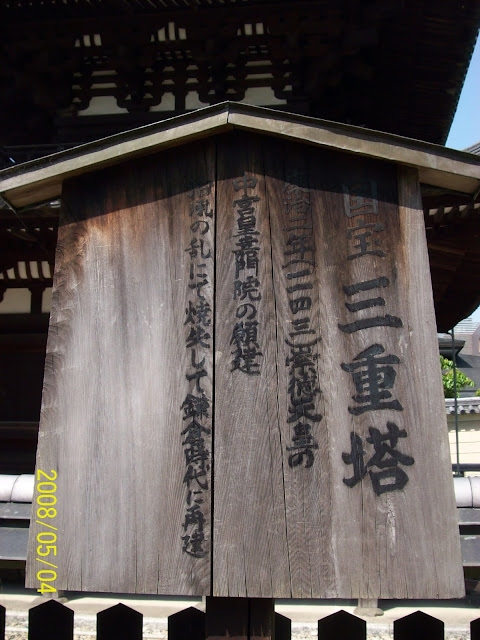 国宝 三重塔
康治二年(一一四三)崇徳天皇の
中宮皇嘉門院の願建
治承の乱にて焼失して鎌倉時代に再建
2008/05/04